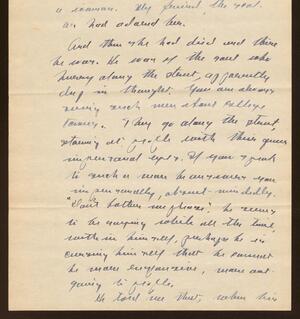 a woman. My friend, the poet.
an had adored her.
And then she had died and there
he was. He was of the sort who
hurry along the street, apparently
deep in thought. You are always
seeing such men about colleges
towns. They go along the street,
staring at people with their queer
impersonal eyes. If you speak
to such a man he answers you
impersonally, absent-mindedly.
"Don't bother me please" he seems
to be saying while all the time,
within himself, perhaps he is
cursing himself that he cannot
be more responsive, more out-
going to people.
He told me that, when his